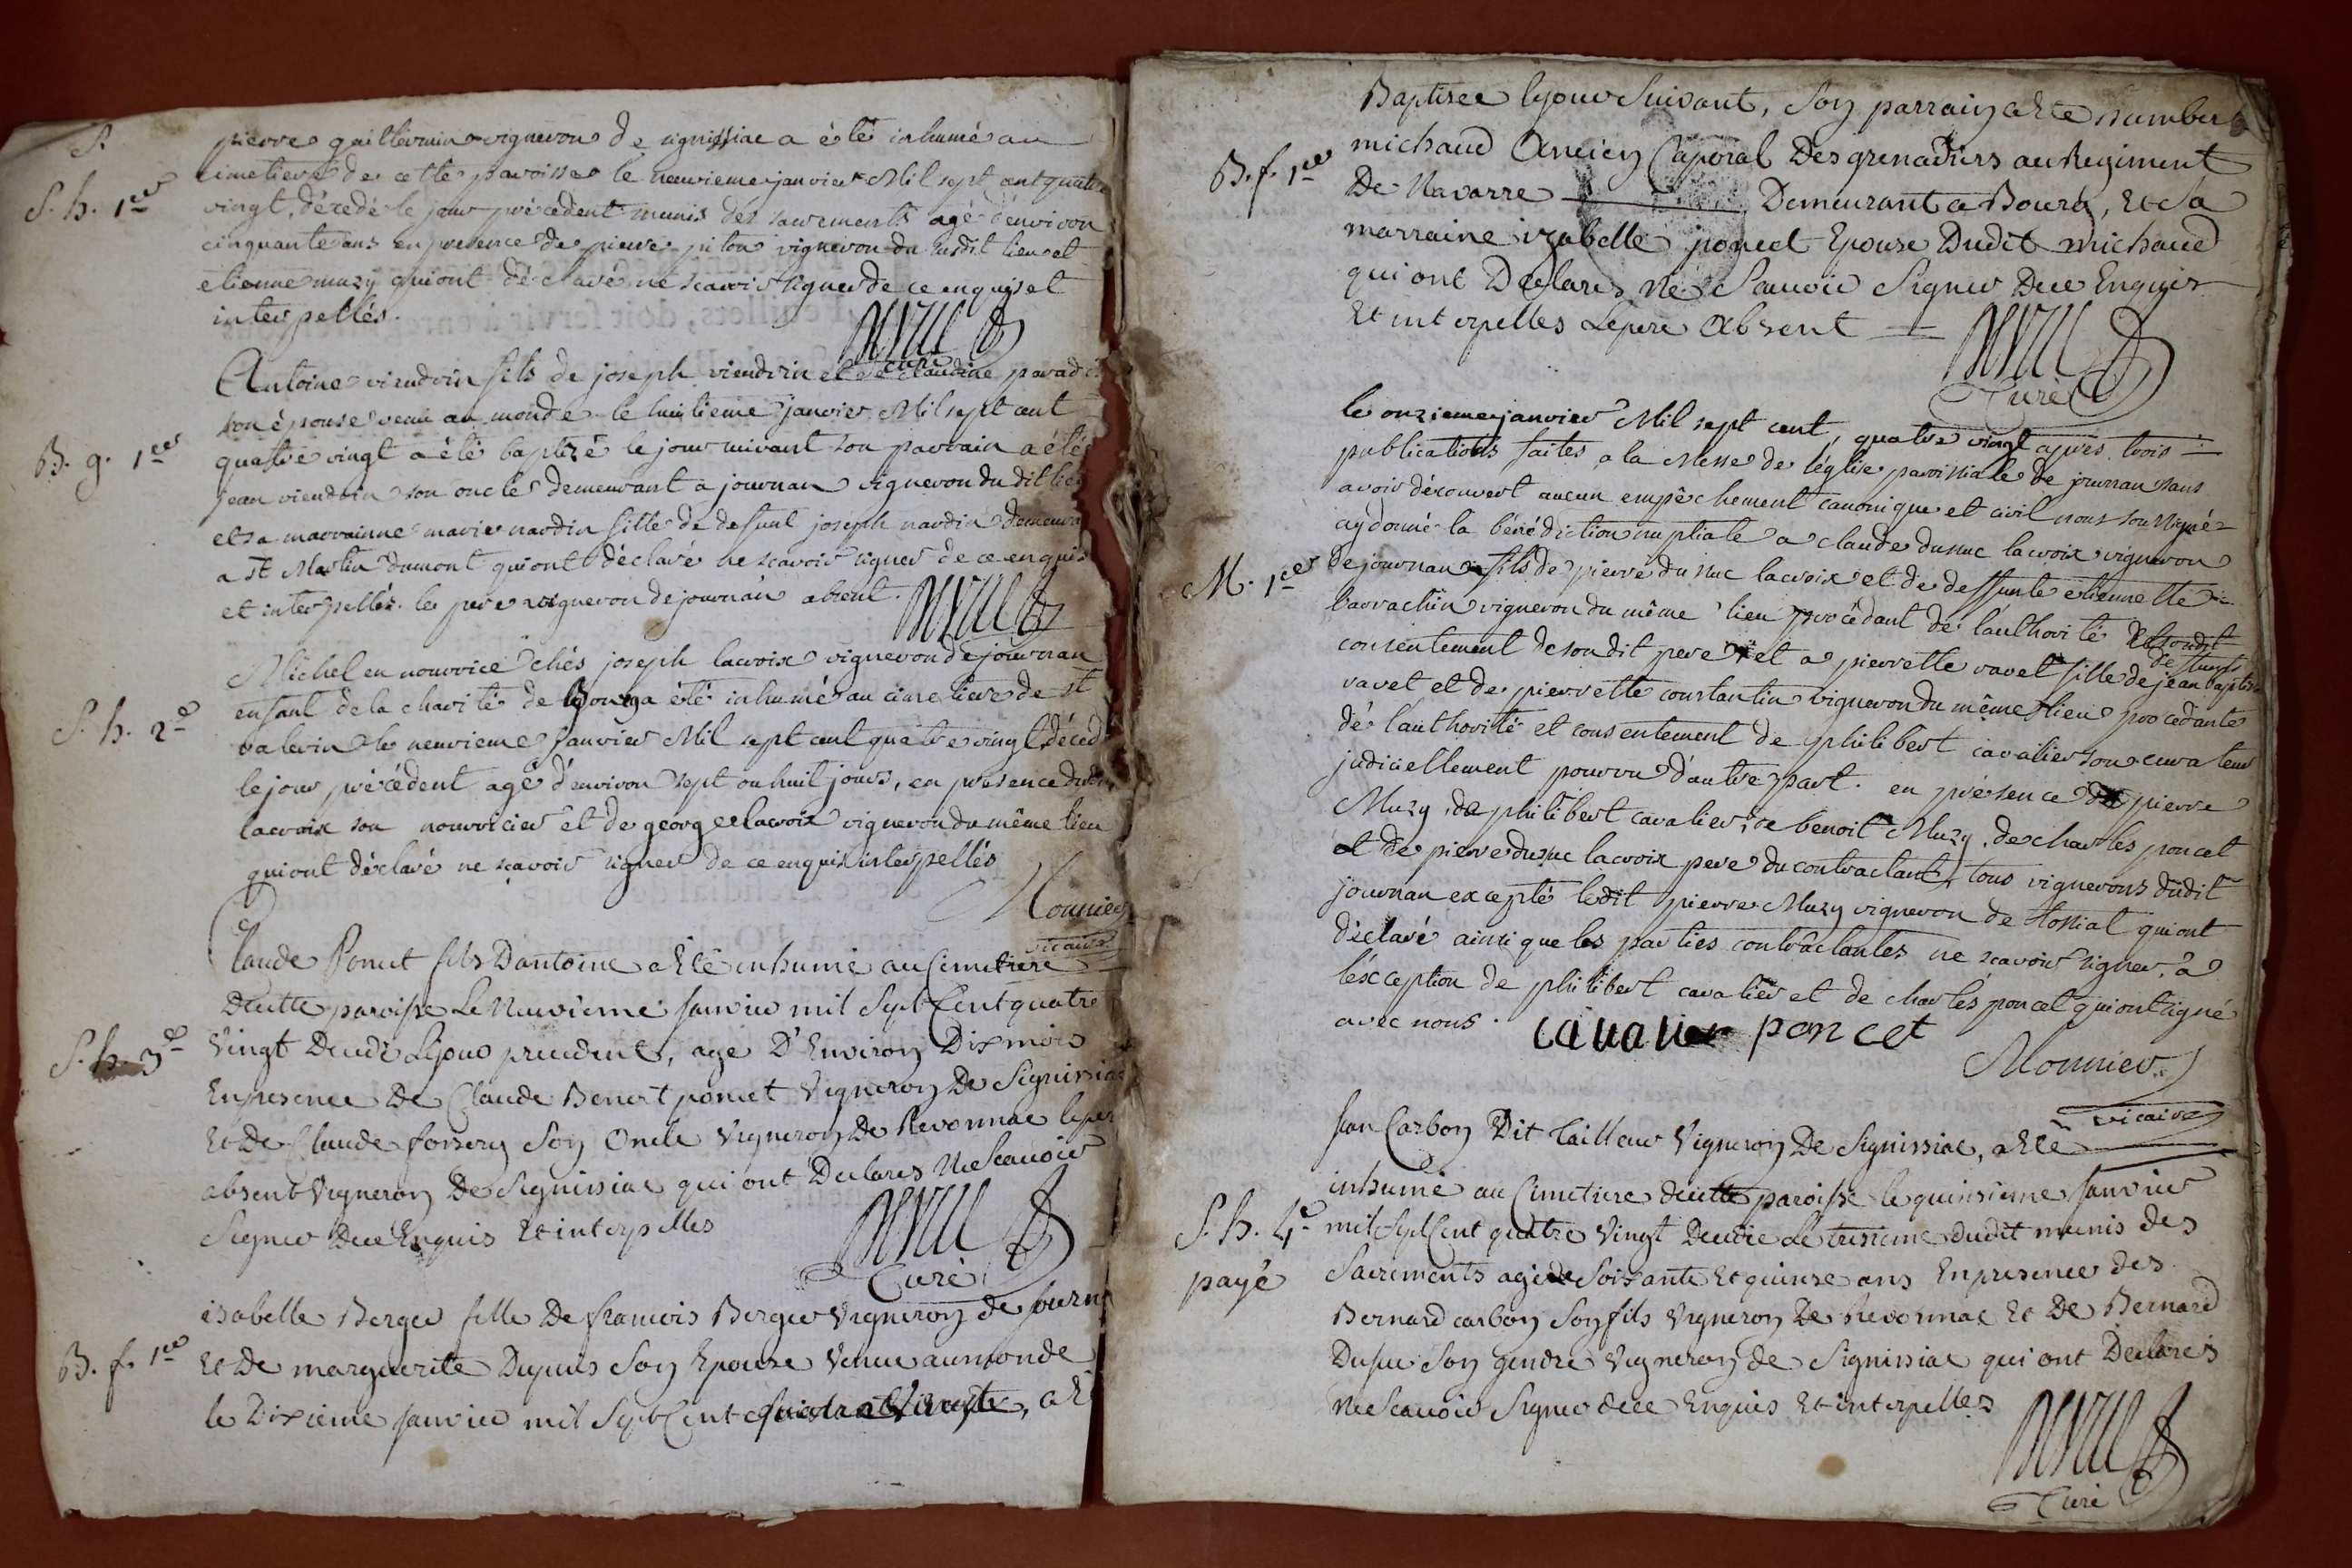 S. h. 1ere
pierre guillermin vigneron de signissiac a été inhumé au
cimetiere de cette paroisse le neuvieme janvier Mil sept cent quatre
vingt, décedé le jour précedent munis des sacrements agé d'environ
cinquante ans en presence de pierre piton vigneron du susdit lieu et
etienne muzy qui ont déclaré ne scavoir signer de ce enquis et
interpellés.
curé
B. g. 1ere
Antoine viendrin fils de joseph viendrin et de claudine parad
son épouse venu au monde le huitieme janvier Mil sept cent
quatre vingt a été baptizé le jour suivant son parrain a été
jean viendrin son oncle demeurant a journan vigneron du dit lieu
et sa marrainne marie nardin fille de defunt joseph nardin demeura
a St Martin dumont qui ont déclaré ne scavoir signer de ce enquis
et interpellés. le pere vigneron de journan absent.
S. h. 2e
Michel en nourrice chés joseph lacroix vigneron de journan
enfant de la charité de Bourg a été inhumé au cimetiere de st
valerin le neuvieme janvier Mil sept cent quatre vingt, décéd
le jour précédent agé d'environ sept ou huit jours, en presence dudit
lacroix son nourricier et de george lacroix vigneron du même lieu
qui ont déclaré ne scavoir signer de ce enquis interpellés
Monnier
vicaire
S. h. 3e
Claude Poncet fils Dantoine a Eté inhumé au Cimetiere
Decette paroisse Le Neuvieme Janvier mil Sept Cent quatre
Vingt Decedé Lejour precedent, age D'Environ Dix mois
Enpresence De Claude Benoit poncet Vigneron De Signissiac
Et De Claude forsery Son Oncle Vigneron De Revonnac lepere
absent Vigneron De Signissiac qui ont Declares Ne Scavoir
Signer Dece Enquis Et interpelles
Curé
B. f. 1ere
isabelle Berger fille De francois Berger Vigneron de Journ
Et De marguerite Dupuis Son Epouse Venue aumonde
le Dixieme Janvier mil Sept Cent quatre Vingt, a Eté
B. f. 1ere
Baptisee lejour Suivant, Son parrain a Ete humbert
michaud Ancien Caporal Des grenadiers au Regiment
De Navarre Demeurant a Bourg, Et Sa
marraine izabelle poncet Epouse Dudit michaud
qui ont Declares Ne Scavoir Signer Dece Enquis
Et interpelles Lepere Absent
Curé
M. 1ere
le onzieme janvier Mil sept cent, quatre vingt apres trois
publications faites a la Messe de l'église paroissiale de journan sans
avoir découvert aucun empêchement canonique et civil nous soussigné
ay donné la bénédiction nuptiale a claude dusuc lacroix vigneron
de journan fils de pierre dusuc lacroix et de deffunte etiennette
barrachin vigneron du même lieu procédant de l'authorité et
consentement de sondit pere et a pierrette ravet fille de defunt jean baptiste
ravet et de pierrette constantin vigneron du même lieu procedante
de l'authorité et consentement de philibert cavalier son curateur
judiciellement pourvu d'autre part. en présence de pierre
Muzy, de philibert cavalier, de benoit Muzy, de charles poncet
et de pierre dusuc lacroix pere du contractant, tous vignerons dudit
journan excepté ledit pierre Muzy vigneron de tossiat qui ont
déclaré ainsi que les parties contractantes ne scavoir signer, a
l'exception de philibert cavalier et de charles poncet qui ont signé
avec nous.
cavalier poncet
Monnier
vicaire
S. h. 4e
payé
Jean Carbon Dit Tailleur Vigneron De Signissiac, a Eté
inhumé au Cimetiere decette paroisse le quinsieme Janvier
mil Sept Cent quatre Vingt Decedé Le tresieme dudit munis des
Sacrements agé de Soixante Et quinse ans Enpresence des
Bernard carbon Son fils Vigneron De Revonnac Et De Bernard
Dusuc Son gendre Vigneron de Signissiac qui ont Declares
Ne Scavoir Signer dece Enquis Et interpelles
Curé